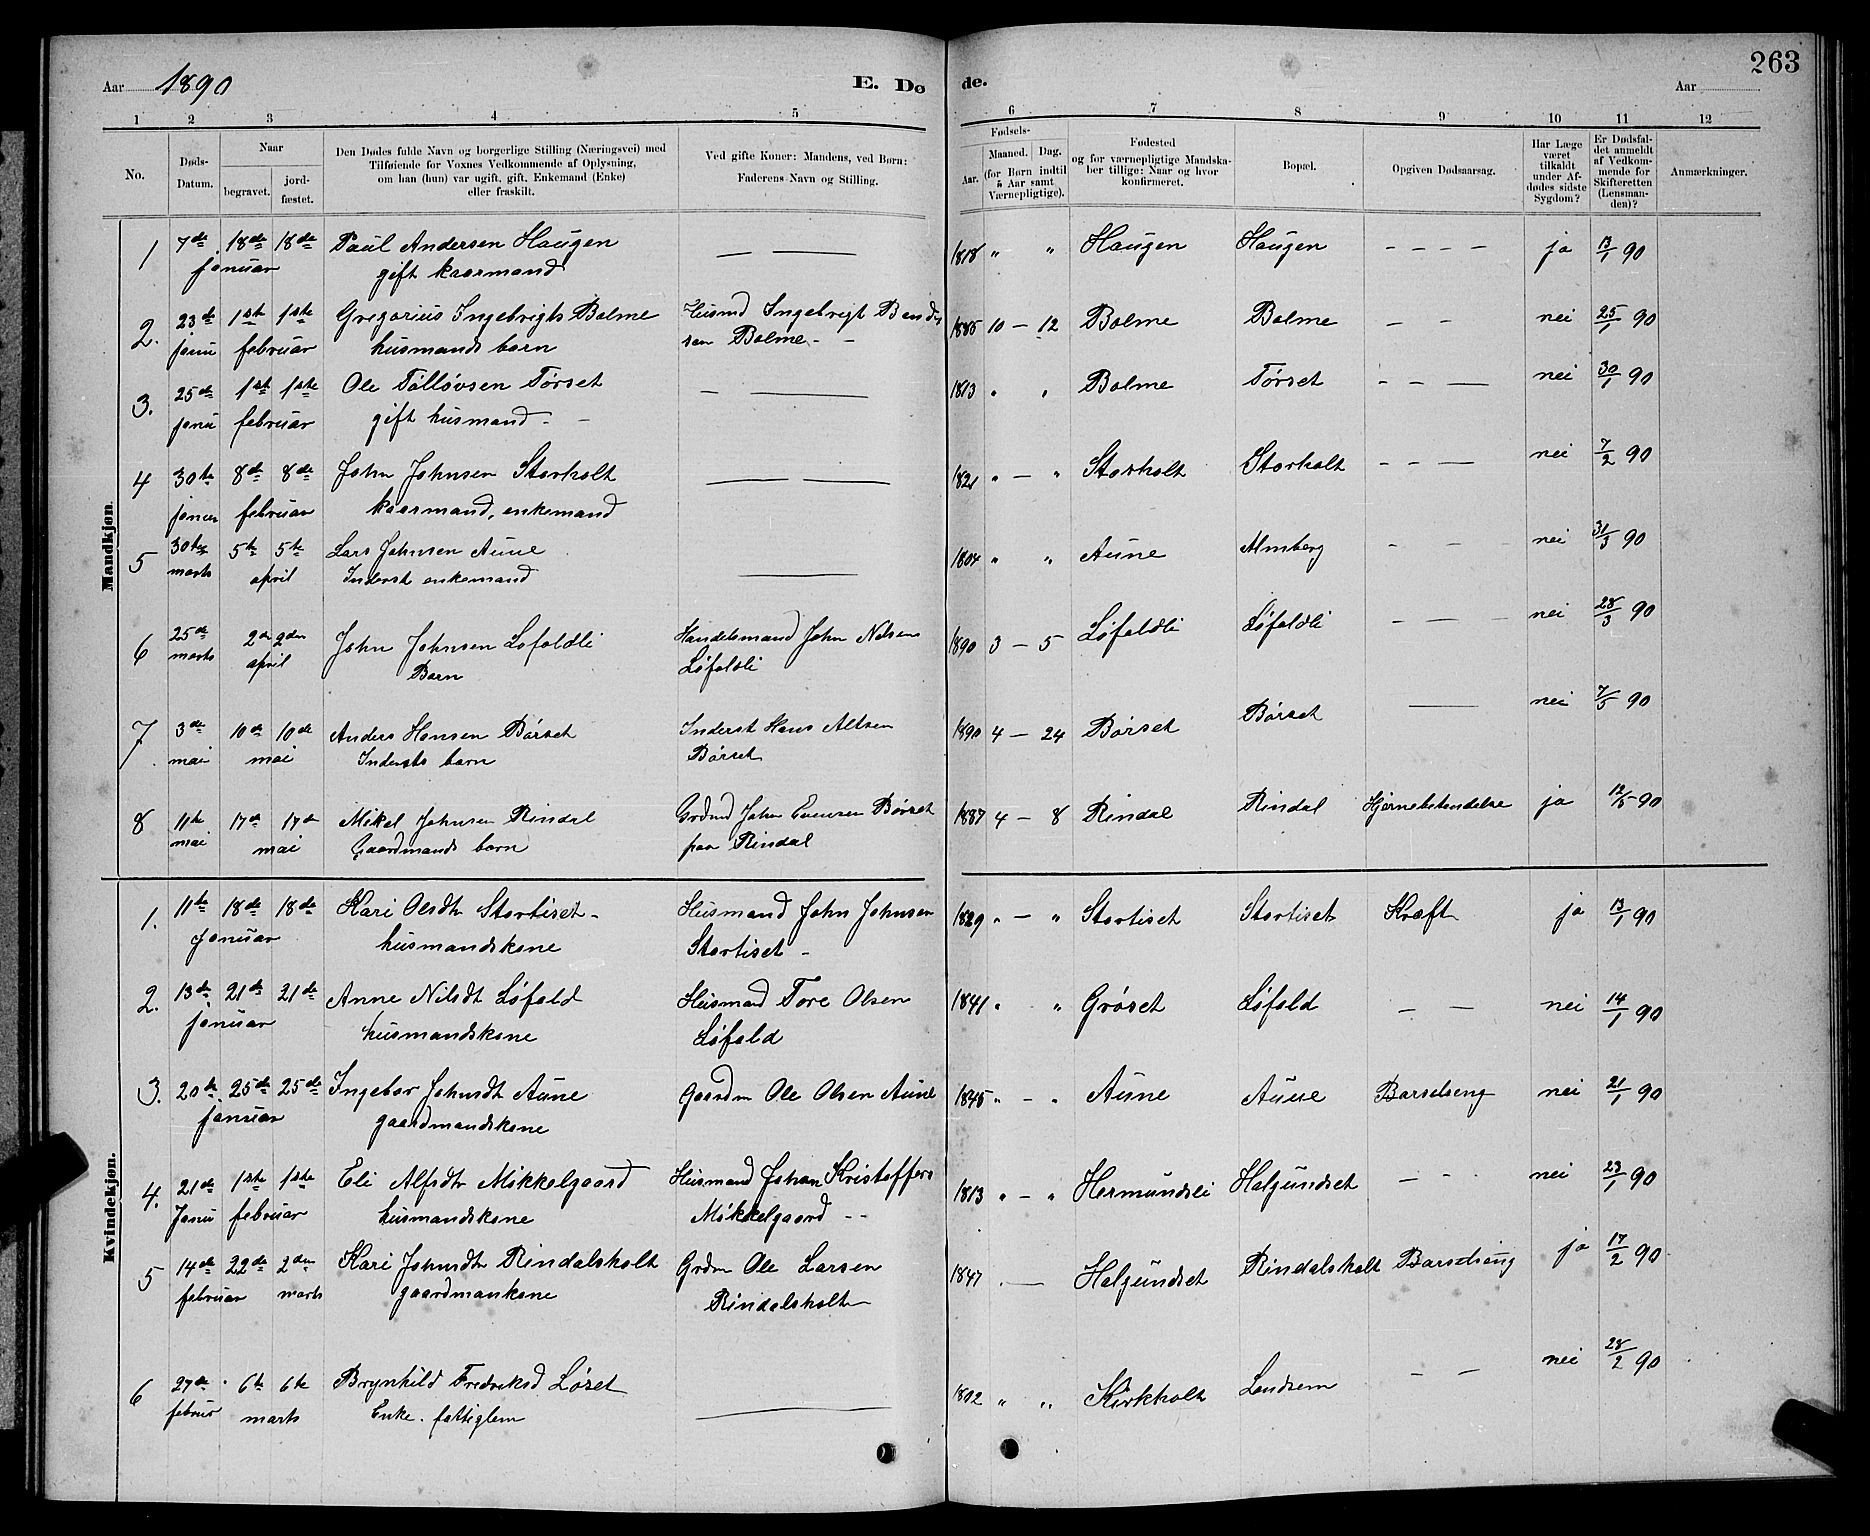 263
Aar 1890 E. Dø de. Aar
1 2 3 4 5 6 7 8 9 10 11 12
No.
Døds-
Datum.
Naar
begravet.
jord-
fæstet.
Den Dødes fulde Navn og borgerlige Stilling (Næringsvei) med
Tilføiende for Voxnes Vedkommende af Oplysning,
om han (hun) var ugift, gift, Enkemand (Enke)
eller fraskilt.
Ved gifte Koner: Mandens, ved Børn:
Faderens Navn og Stilling.
Fødsels-
Aar.
Maaned. Dag.
(for Børn indtil
5 Aar samt
Værnepligtige).
Fødested
og for værnepligtige Mandska-
ber tillige: Naar og hvor
konfirmeret.
Bopæl.
Opgiven Dødsaarsag.
Har Læge
været
tilkaldt
under Af-
dødes sidste
Sygdom?
Er Dødsfal-
det anmeldt
af Vedkom-
mende for
Skifteretten
(Lensman-
den)?
Anmærkninger.
Mandkjøn.
1 7de 18de 18de Paul Andersen Haugen — — 1818 " " Haugen Haugen - - - - ja 13/1 90
januar gift kaarmand
2. 23de 1ste 1ste Gregorius Ingebrigts Bolme Husmd Ingebrigt Bends 1885 10 - 12 Bolme Bolme - - nei 25/1 90
janu februar husmands barn sen Bolme - -
3. 25de 1ste 1ste Ole Tølløvsen Tørset - — 1813 " " Bolme Tørset - - — nei 30/1 90
janu februar gift husmand - -
4 30te 8de 8de John Johnsen Storholt — — 1821 " - " Storholt Storholt - - — nei 7/2 90
januar februar kaarmand, enkemand
5 30te 5te 5te Lars Johnsen Aune — 1804 " " Aune Almberg - — - nei 31/3 90
marts april Inderst enkemand
6 25de 2den 2den John Johnsen Løfaldli Handelsmand John Nilsen 1890 3 - 5 Løfaldli Løfaldli - — - nei 28/3 90
marts april Barn Løfaldli
7. 3de 10de 10de Anders Hansen Børset Inderst Hans Altsen 1890 4 - 24 Børset Børset — nei 7/5 90
mai mai Indersts barn Børset
8 11te 17de 17de Mikel Johnsen Rindal Grdmd John Evensen Børset 1887 4 - 8 Rindal Rindal Hjernebetendelse ja 12/5 90
mai mai Gaardmands barn paa Rindal
Kvindekjøn.
1. 11te 18de 18de Kari Olsdtr Stortiset - Husmand John Johnsen 1829 " - " Stortiset Stortiset Kræft ja 13/1 90
januar husmandskone Stortiset -
2. 13de 21de 21de Anne Nilsdt Løfald Husmand Tore Olsen 1841 " " Grøset Løfald - - nei 14/1 90
januar husmandskone Løfald
3. 20de 25de 25de Ingebor Johnsdt Aune Gaardm Ole Olsen Aune 1845 " - " Aune Aune Barselseng nei 21/1 90
januar gaardmandskone
4. 21de 1ste 1ste Eli Alfsdtr Mikkelgaard Husmand Johan Kristoffers 1813 " - " Hermundsli Halgundset - - - nei 23/1 90
Janu februar husmandskone Mikkelgaard - -
5 14de 22de 2den Kari Johnsdtr Rindalsholt Grdm Ole Larsen 1847 " — Halgundset Rindalsholt Barselseng ja 17/2 90
februar marts gaardmankone Rindalsholt
6 27de 6te 6te Brynhild Fredriksd Løset — 1802 " " Kirkholt Landsem - - nei 28/2 90
februar marts Enke. fattiglem